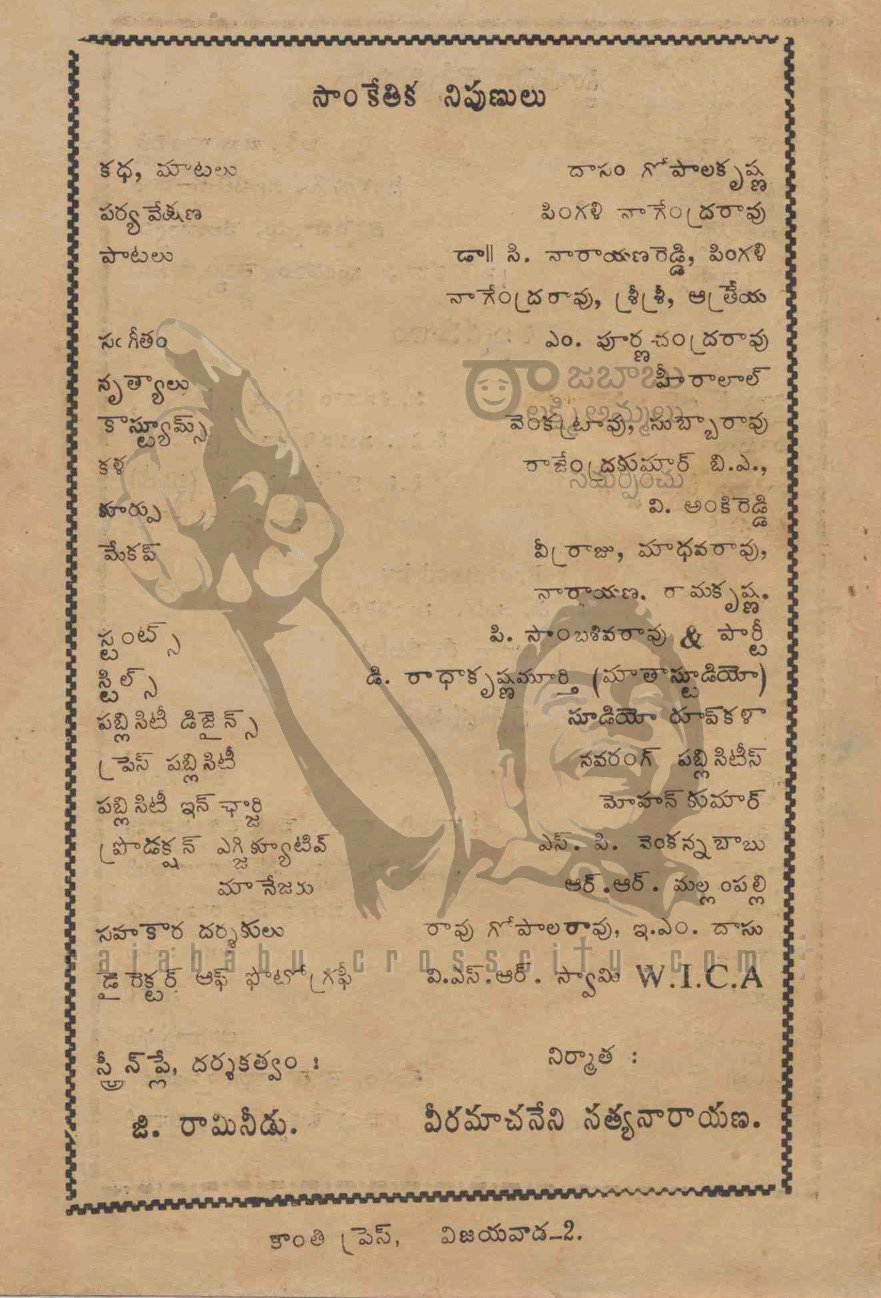 సాంకేతిక నిపుణులు
కధ, మాటలు దాసం గోపాలకృష్ణ
పర్యవేక్షణ పింగళి నాగేంద్రరావు
పాటలు డా॥ సి. నారాయణరెడ్డి, పింగళి
నాగేంద్రరావు, శ్రీశ్రీ, ఆత్రేయ
సంగీతం ఎం. పూర్ణచంద్రరావు
నృత్యాలు హీరాలాల్
కాస్ట్యూమ్స్ వెంకట్రావు, సుబ్బారావు
కళ రాజేంద్రకుమార్ బి.ఎ.,
కూర్పు వి. అంకిరెడ్డి
మేకప్ వీర్రాజు, మాధవరావు,
నారాయణ. రామకృష్ణ.
స్టంట్స్ పి. సాంబశివరావు & పార్టీ
స్టిల్స్ డి. రాధాకృష్ణమూర్తి (మాతాస్టూడియో)
పబ్లిసిటీ డిజైన్స్ స్టూడియో రూప్‌కళా
ప్రెస్ పబ్లిసిటీ నవరంగ్ పబ్లిసిటీస్
పబ్లిసిటీ ఇన్‌ఛార్జి మోహన్‌కుమార్
ప్రొడక్షన్ ఎగ్జిక్యూటివ్ ఎస్. పి. వెంకన్నబాబు
మానేజరు ఆర్.ఆర్. మల్లంపల్లి
సహకార దర్శకులు రావు గోపాలరావు, ఇ.ఎం. దాసు
డైరెక్టర్ ఆఫ్ ఫోటోగ్రఫీ వి.ఎస్.ఆర్. స్వామి W.I.C.A
స్క్రీన్‌ప్లే, దర్శకత్వం : నిర్మాత :
జి. రామినీడు. వీరమాచనేని సత్యనారాయణ.
కాంతి ప్రెస్, విజయవాడ-2.
రాజబాబు
లక్ష్మిఅమ్మలు
సమర్పించు
rajababu.crosscity.com